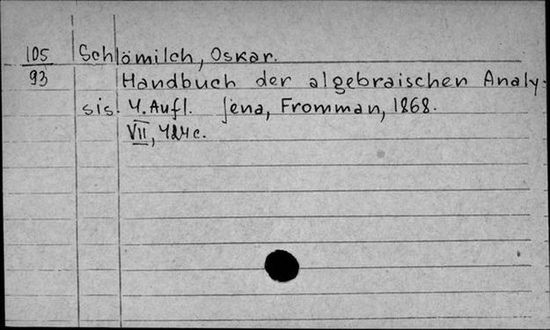 105 Schlömilch, Oskar.
93 Handbuch der algebraischen Analy-
sis. 4. Aufl. Jena, Fromman, 1868.
VII, 424 c.